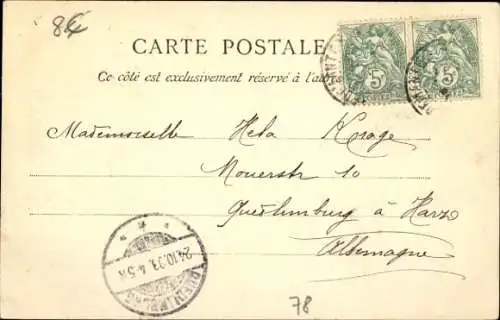 84
CARTE POSTALE
Ce côté est exclusivement réservé à l'adres
5c
5c
Mademoiselle Heda Korage
Mouerstr 10
Quedlimburg à Harze
Allemagne
24.10.03. 4-5N
QUEDLINBURG
78